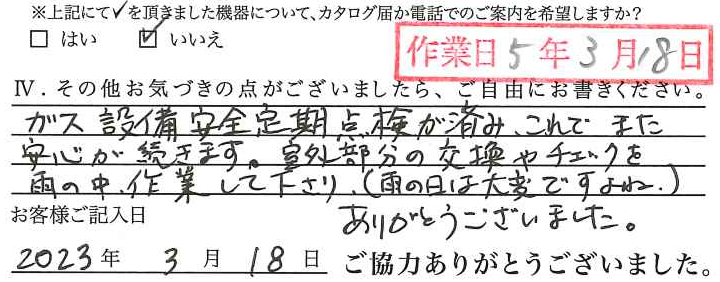 ※上記にて✓を頂きました機器について、カタログ届か電話でのご案内を希望しますか?
□ はい ☑ いいえ
作業日 5 年 3 月 18 日
Ⅳ.その他お気づきの点がございましたら、ご自由にお書きください。
ガス設備安全定期点検が済み、これでまた
安心が続きます。室外部分の交換やチェックを
雨の中、作業して下さり、(雨の日は大変ですよね.)
ありがとうございました。
お客様ご記入日
2023 年 3 月 18 日 ご協力ありがとうございました。